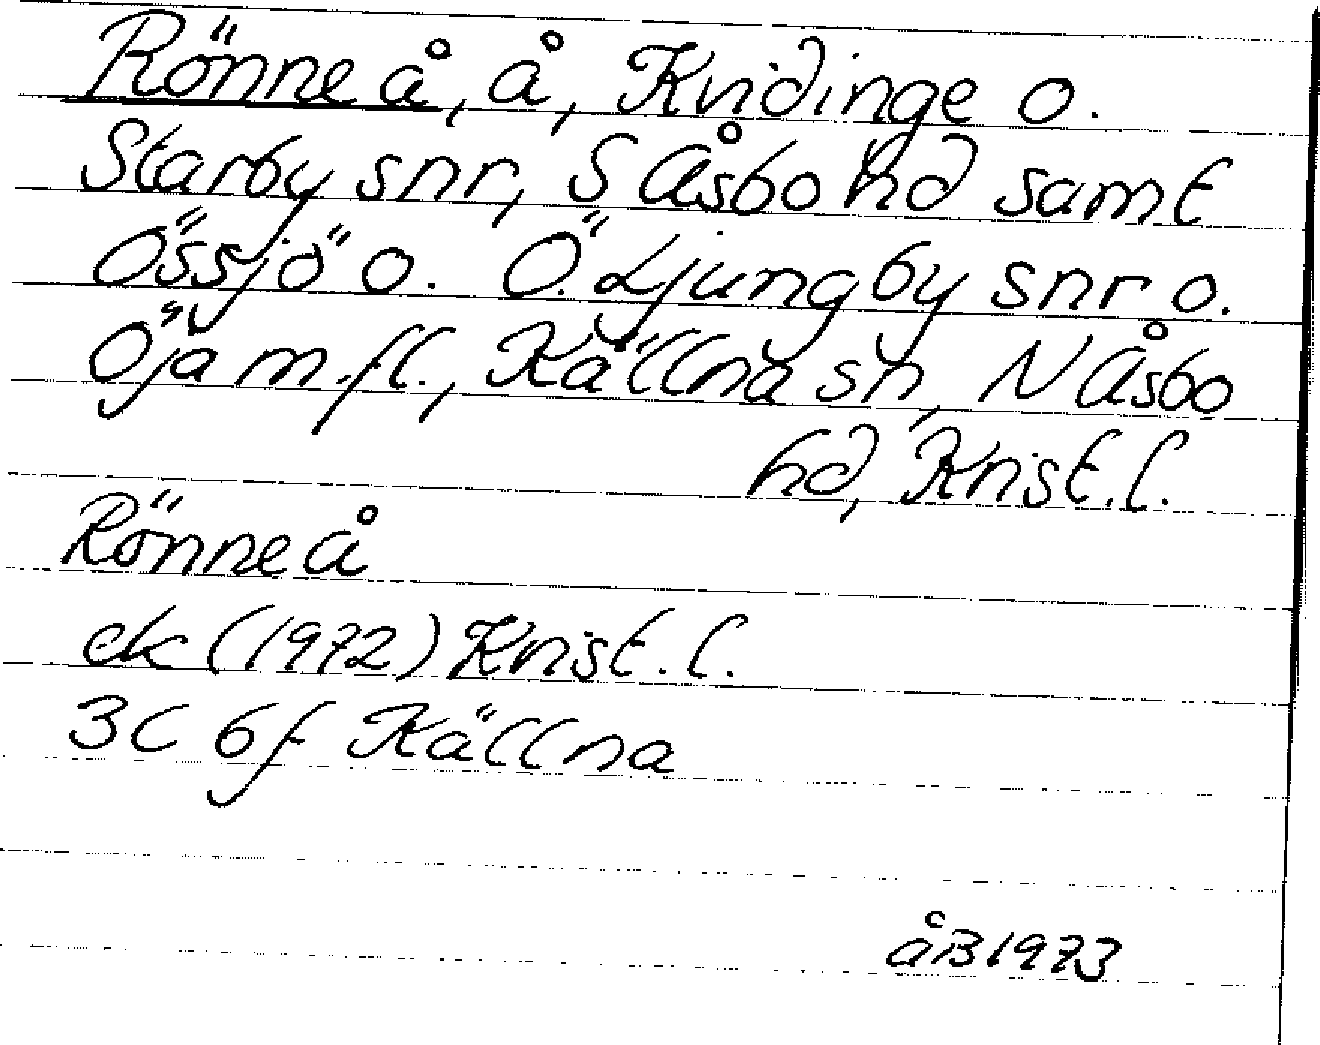 Rönne å, å, Kvidinge o.
Starby snr, S Åsbo hd samt
Össjö o. Ö. Ljungby snr o.
Öja m.fl., Källna sn, N Åsbo
hd, Krist. l.
Rönne å
ek (1972) Krist. l.
3C 6f Källna
åB 1973